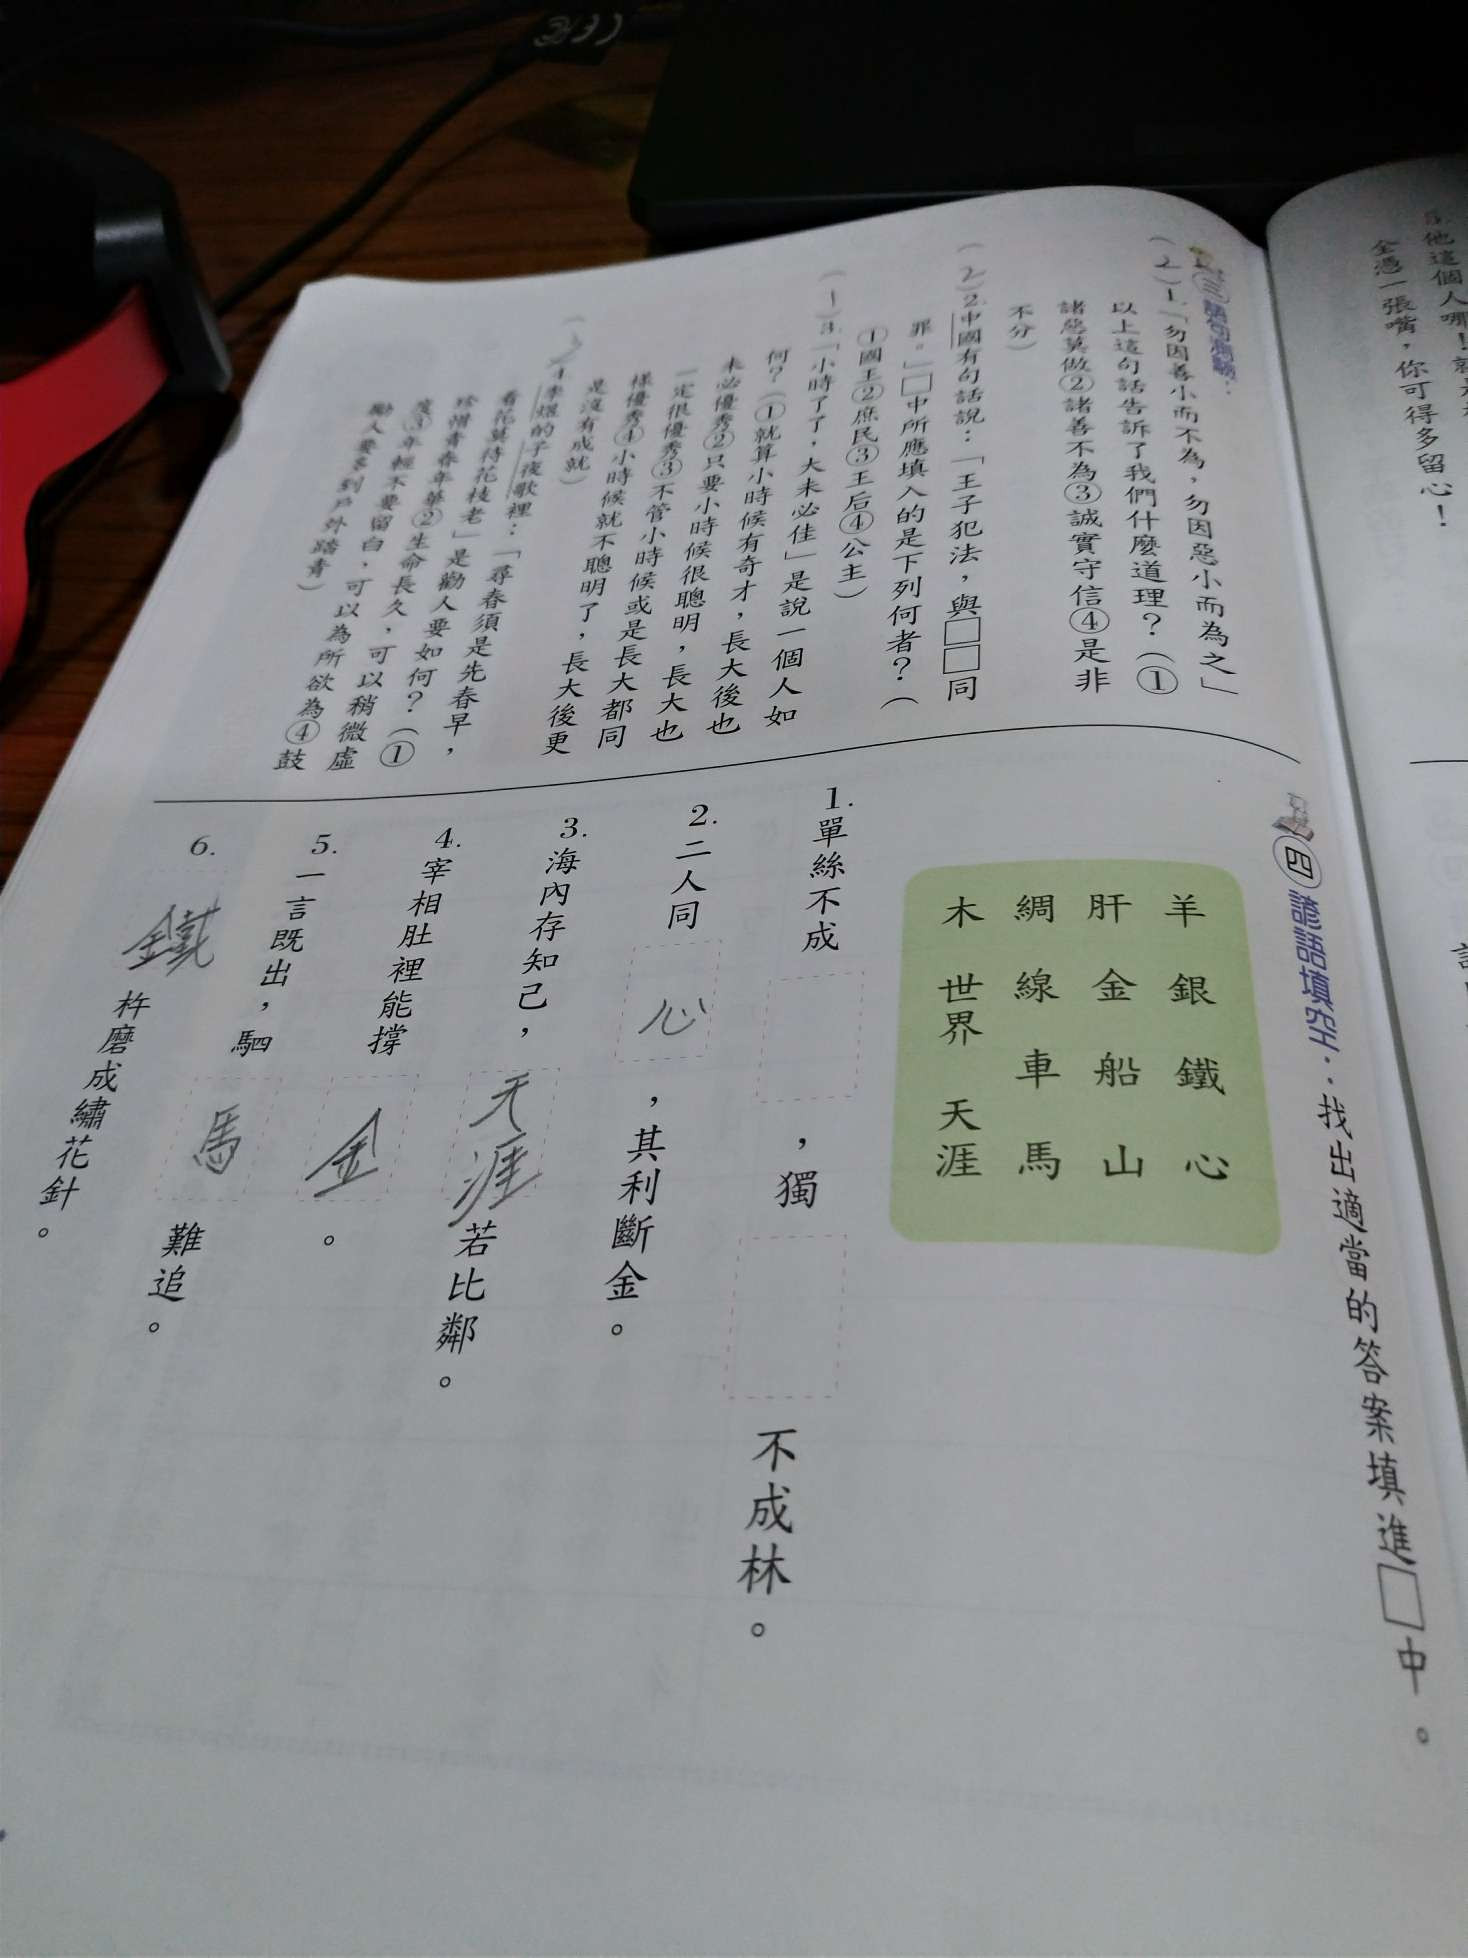 全憑一張嘴，你可得多留心！
三 語句測驗：
(2)1.「勿因善小而不為，勿因惡小而為之」
以上這句話告訴了我們什麼道理？(①
諸惡莫做②諸善不為③誠實守信④是非
不分)
(2)2.中國有句話說：「王子犯法，與□□同
罪。」□中所應填入的是下列何者？(
①國王②庶民③王后④公主)
(1)3.「小時了了，大未必佳」是說一個人如
何？(①就算小時候有奇才，長大後也
未必優秀②只要小時候很聰明，長大也
一定很優秀③不管小時候或是長大都同
樣優秀④小時候就不聰明了，長大後更
是沒有成就)
4.李煜的子夜歌裡：「尋春須是先春早，
看花莫待花枝老」是勸人要如何？(①
珍惜青春年華②生命長久，可以稍微虛
度③年輕不要留白，可以為所欲為④鼓
勵人要多到戶外踏青)
四 諺語填空：找出適當的答案填進□中。
羊 銀 鐵 心
肝 金 船 山
綢 線 車 馬
木 世界 天涯
1.單絲不成 ，獨 不成林。
2.二人同心，其利斷金。
3.海內存知己，天涯若比鄰。
4.宰相肚裡能撐金。
5.一言既出，駟馬難追。
6.鐵杵磨成繡花針。